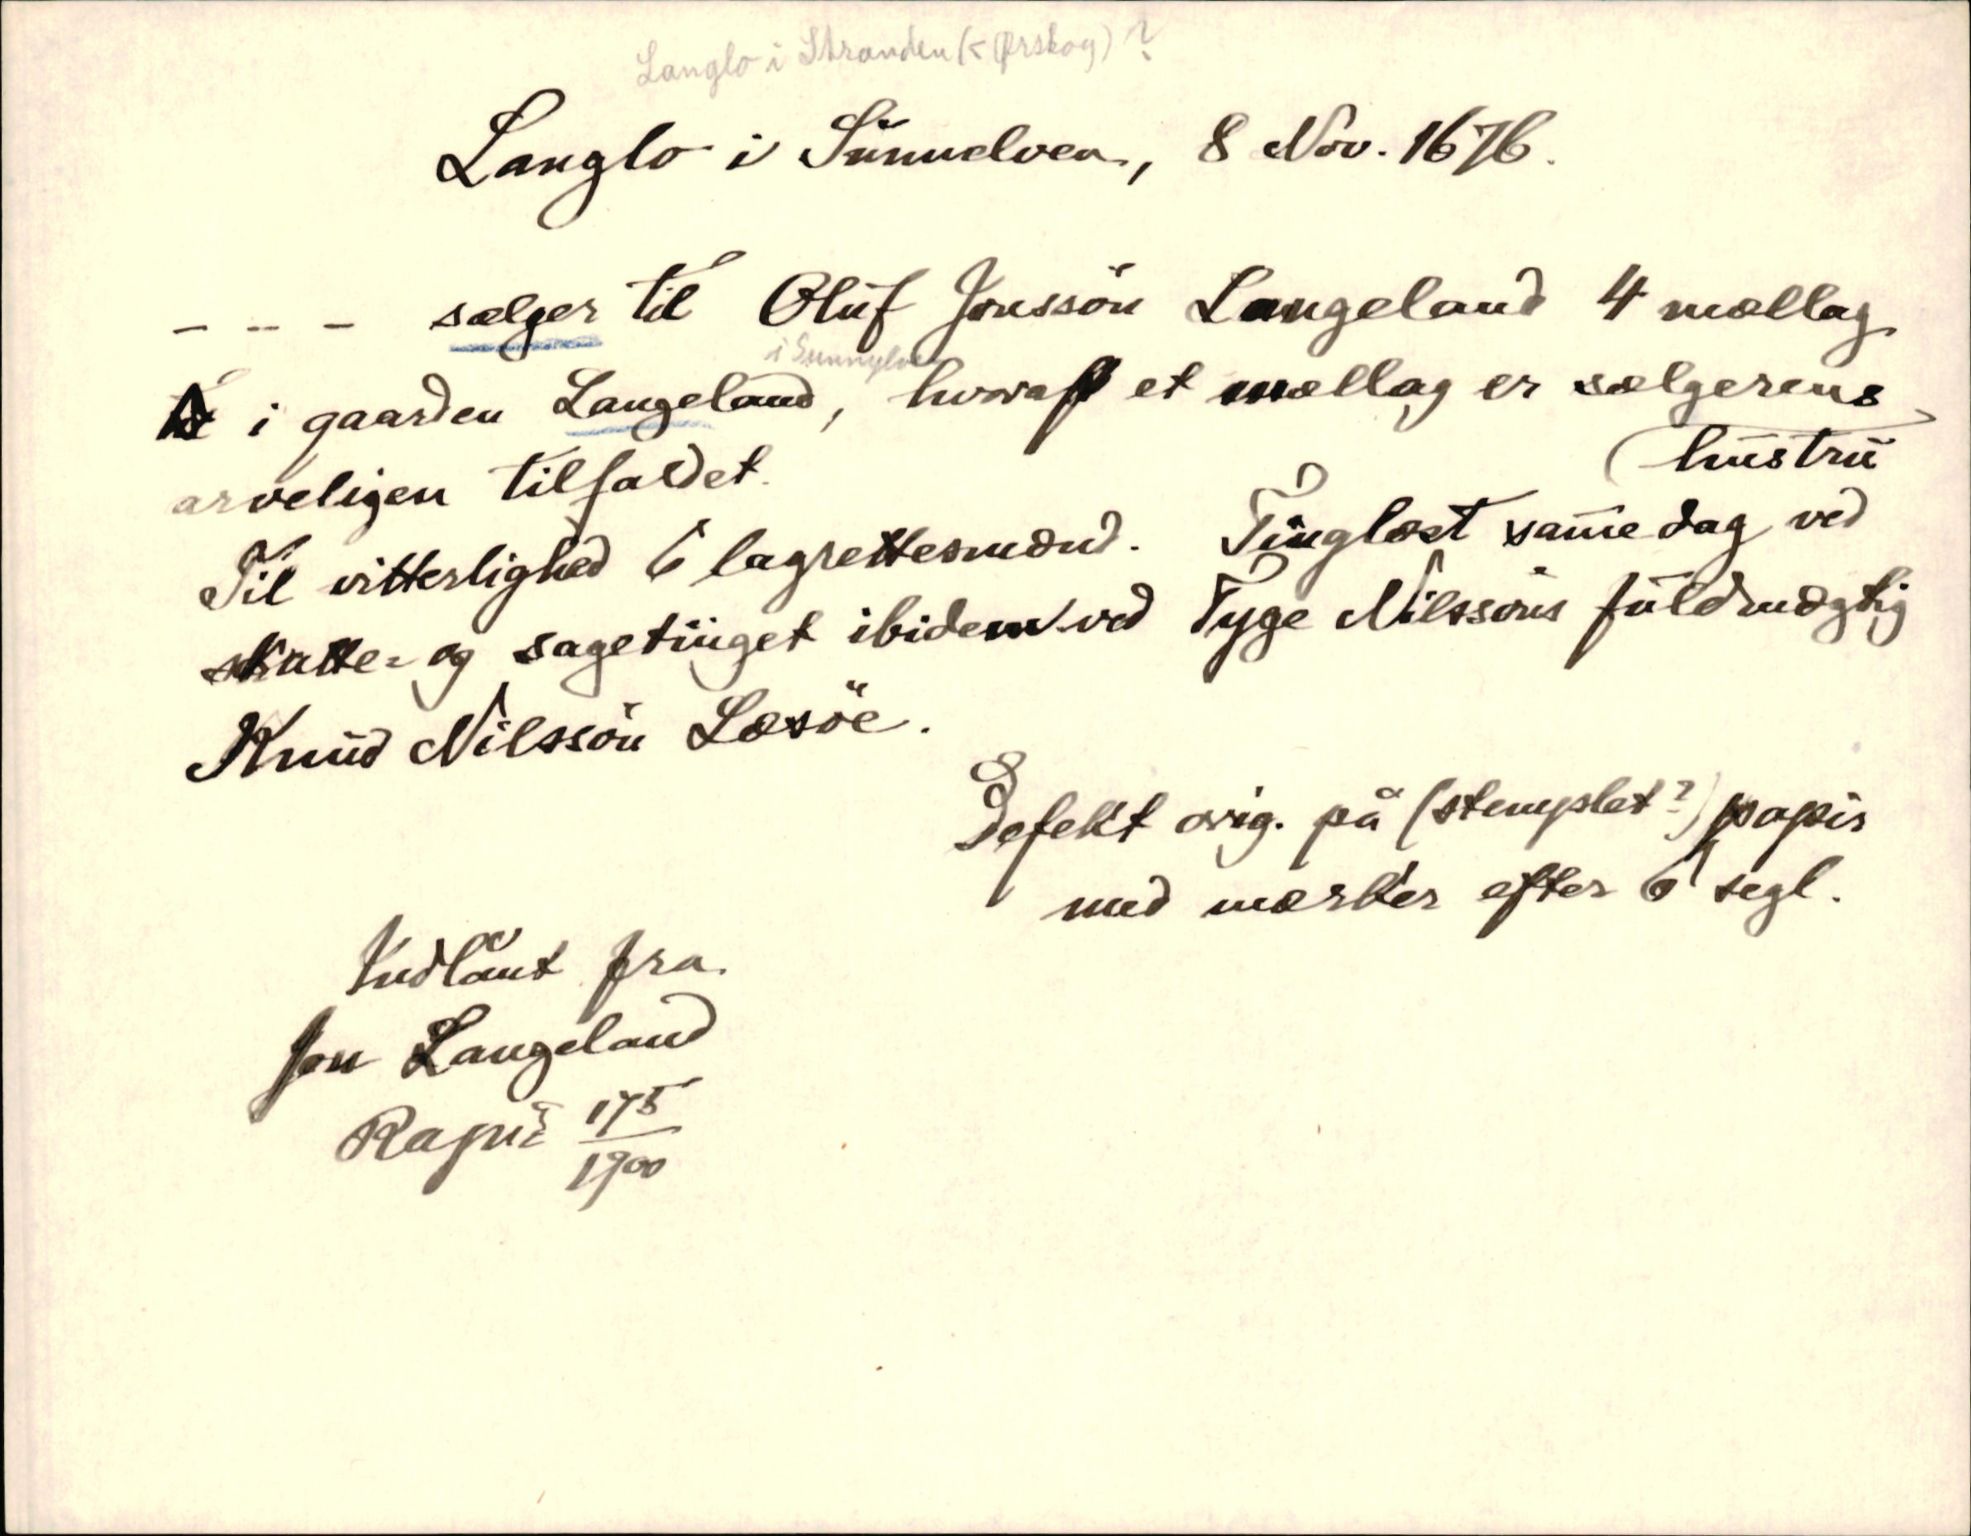 Langlo i Stranden (< Ørskog)?
Langlo i Sunnelven, 8 Nov. 1676.
- - - sælger til Oluf Jonssön Langeland 4 mællag
i Sunnylven
i gaarden Langeland, hvoraf et mællag er sælgerens
(hustru
arveligen tilfaldet.
Til vitterlighed 6 lagrettesmænd. Tinglæst samme dag ved
skatte- og sagetinget ibidem ved Tyge Nilssöns fuldmægtig
Knud Nilssön Læsöe.
Defekt orig. på (stemplet?) papir
med mærker efter 6 segl.
Indlånt fra
Jon Langeland
175
1900